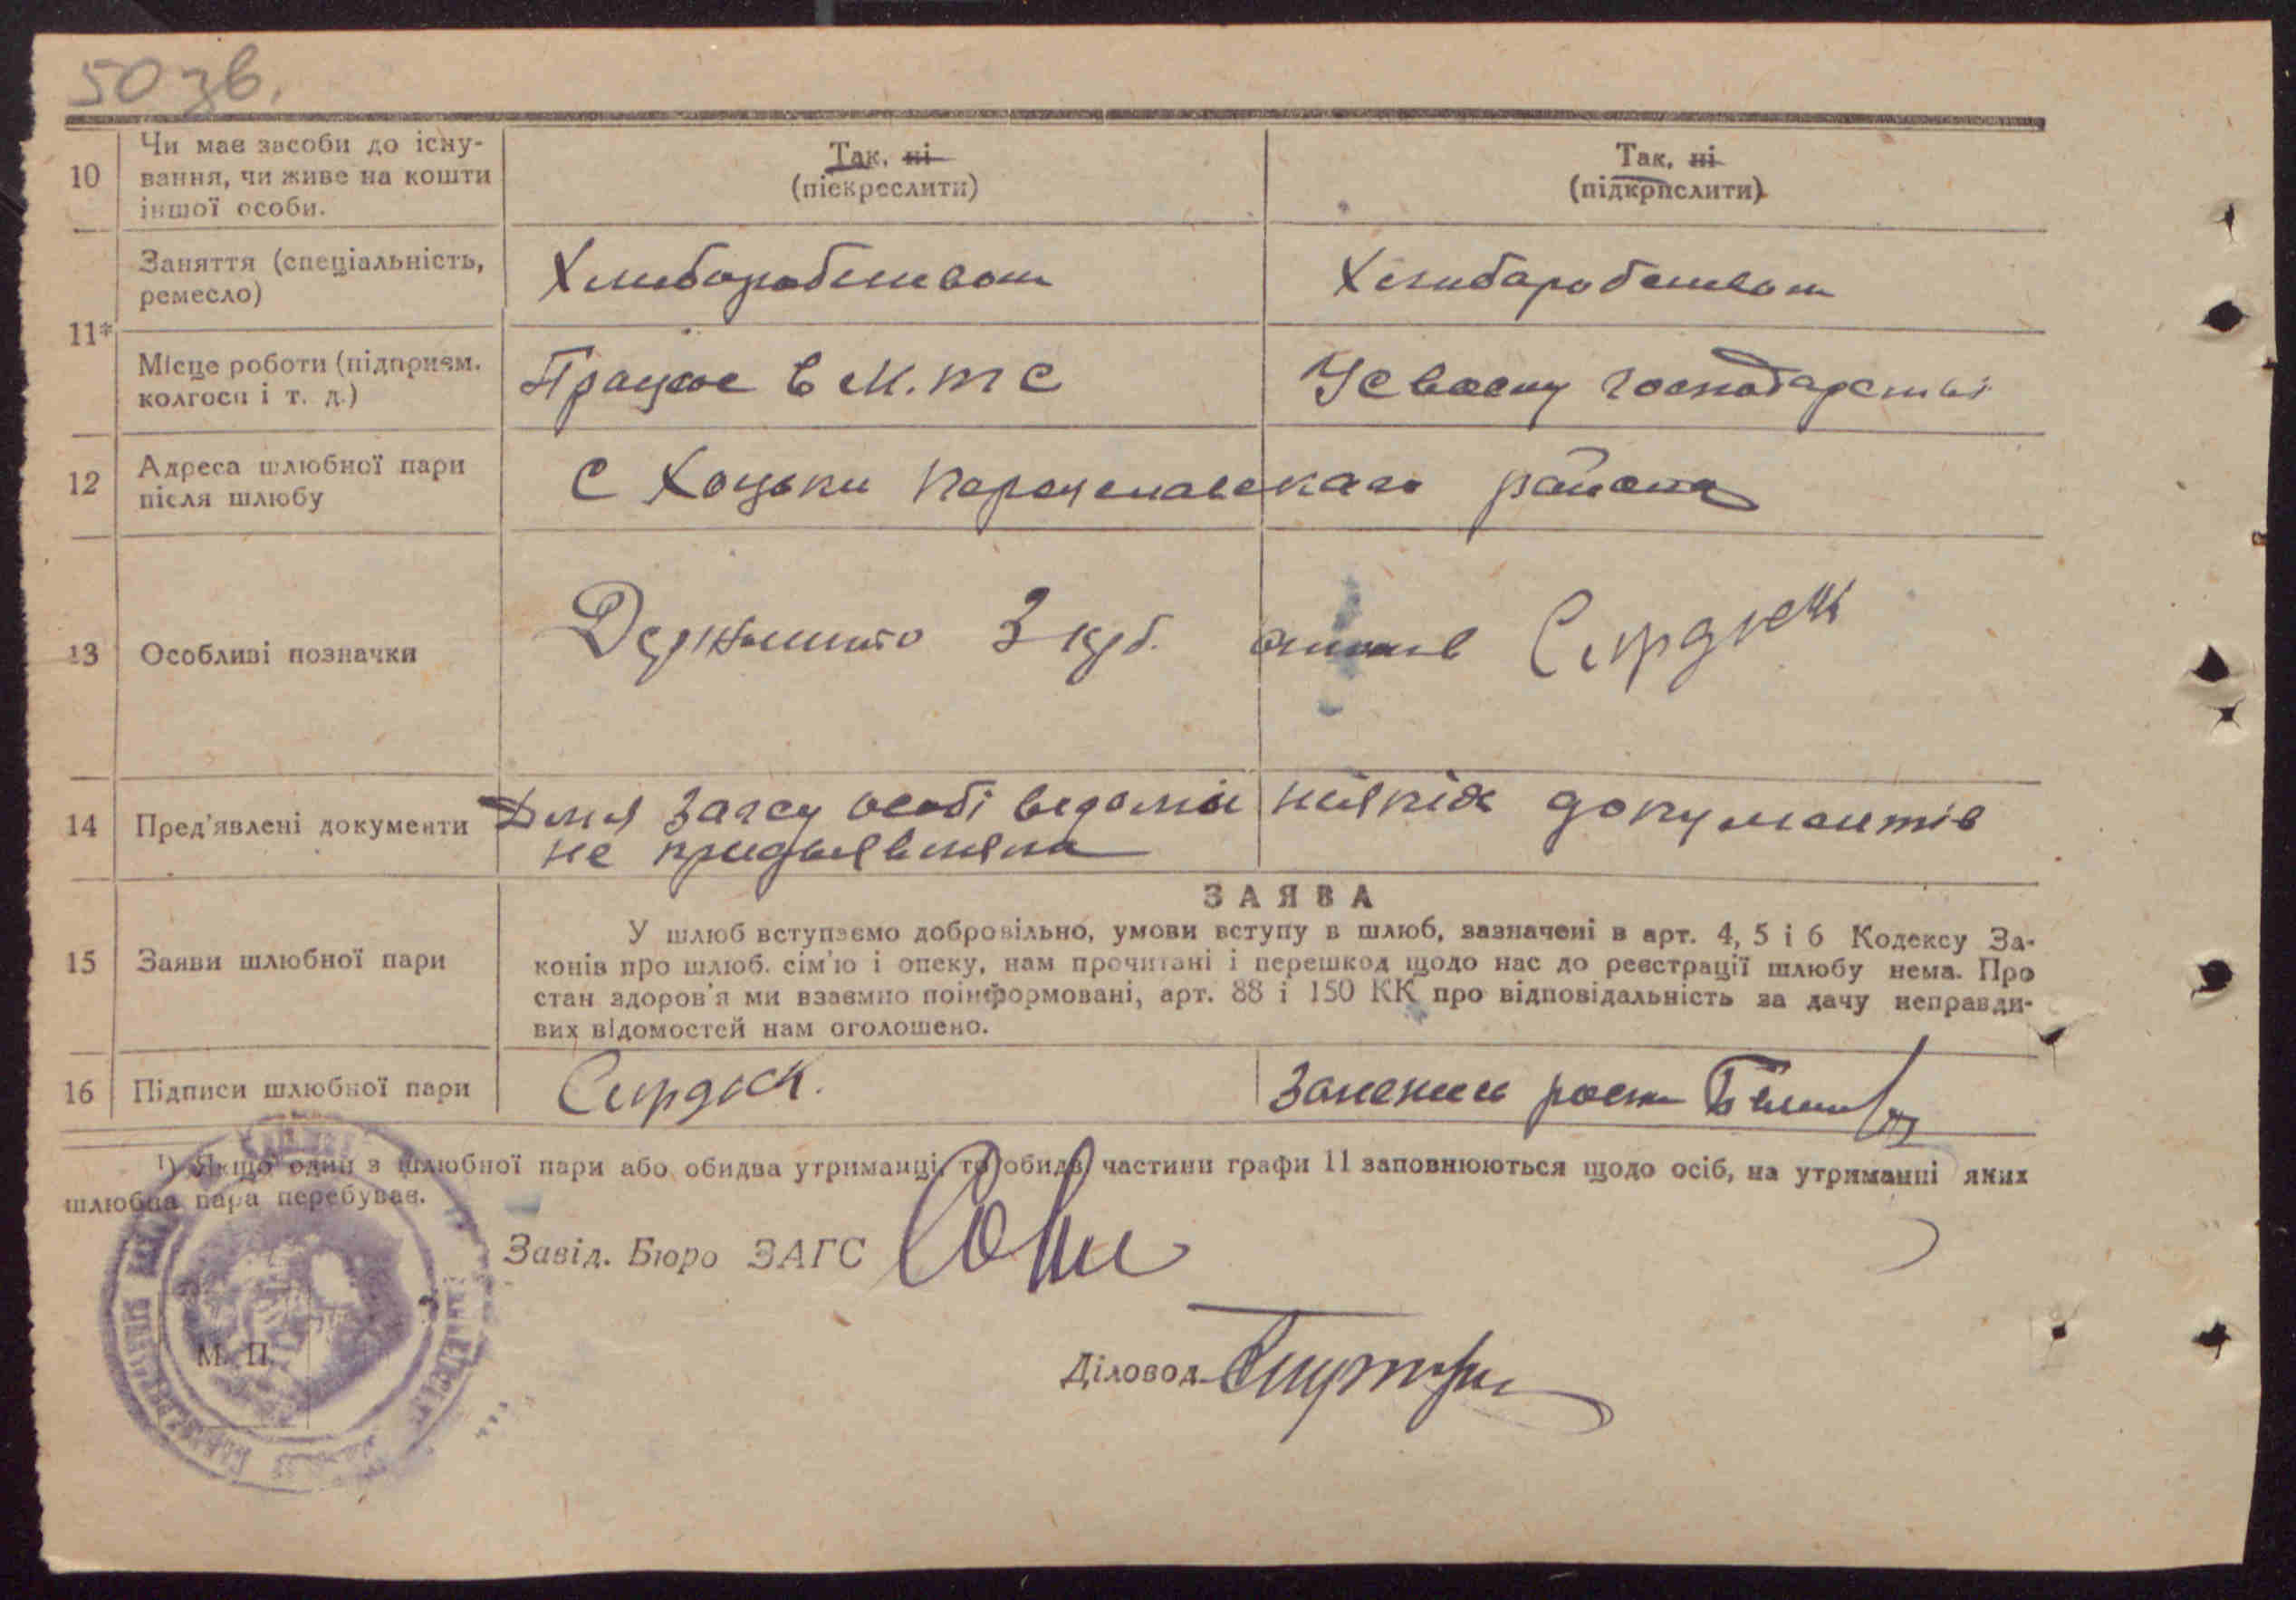 50 зв.
10
Чи має засоби до існу-
вання, чи живе на кошти
іншої особи.
Так, ні
(піекреслити)
Так, ні
(підкрпслити)
11*
Заняття (спеціальність,
ремесло)
Хлиборобством
Хлибаробством
Місце роботи (підприєм.
колгосп і т. д.)
Працює в М.Т С
У своему господарстві
12
Адреса шлюбної пари
після шлюбу
С Хоцьки Переяславскаго района
13
Особливі позначки
Держмито 3 крб.
Сирдюк
14
Пред'явлені документи
Для Загсу особі ведомі ніяких документів
не придъявляли
15
Заяви шлюбної пари
ЗАЯВА
У шлюб вступаємо добровільно, умови вступу в шлюб, зазначені в арт. 4, 5 і 6 Кодексу За-
конів про шлюб. сім'ю і опеку, нам прочитані і перешкод щодо нас до реєстрації шлюбу нема. Про
стан здоров'я ми взаємно поінформовані, арт. 88 і 150 КК про відповідальність за дачу неправди-
вих відомостей нам оголошено.
16
Підписи шлюбної пари
Сирдюк.
1) Якщо один з шлюбної пари або обидва утриманці, то обидві частини графи 11 заповнюються щодо осіб, на утриманні яких
шлюбна пара перебуває.
Завід. Бюро ЗАГС
М. П.
Діловод